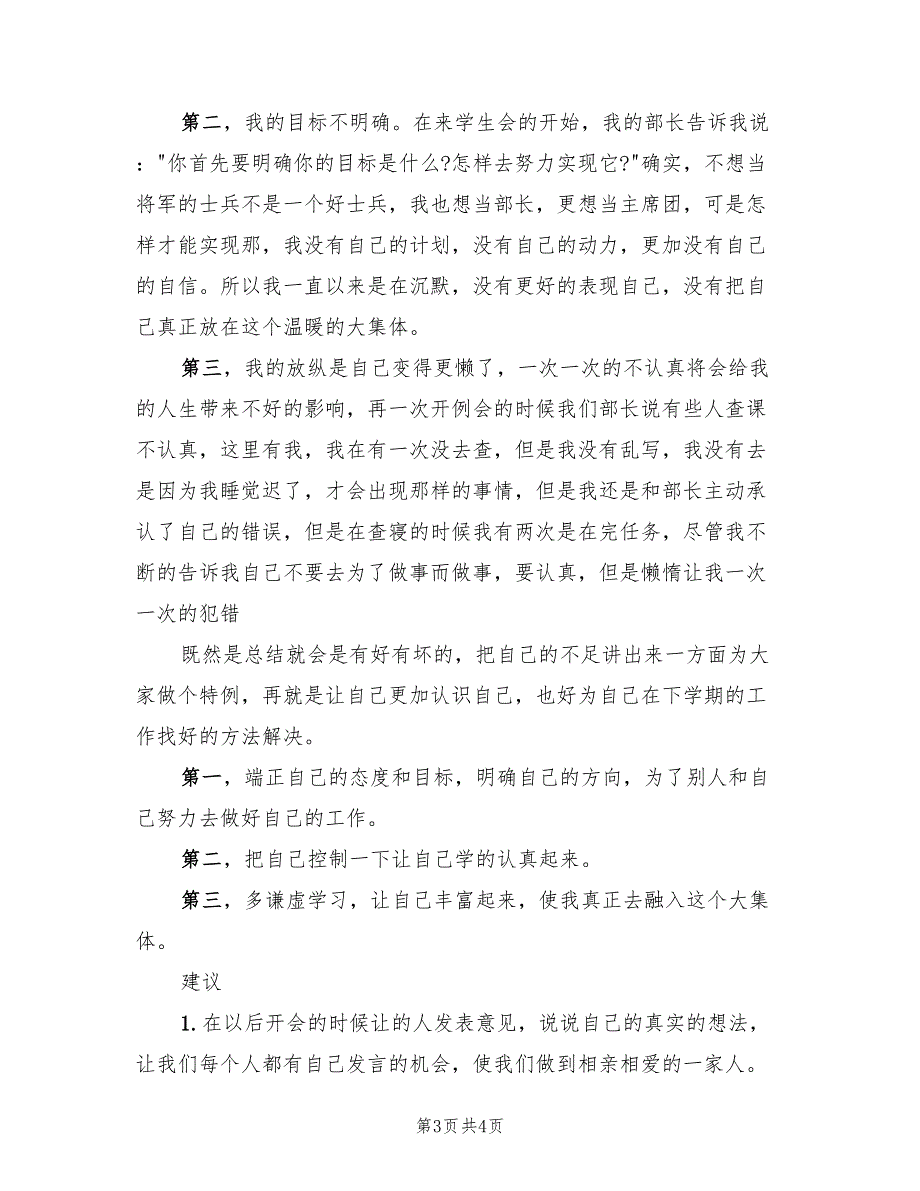 第二，我的目标不明确。在来学生会的开始，我的部长告诉我说
："你首先要明确你的目标是什么?怎样去努力实现它?"确实，不想当
将军的士兵不是一个好士兵，我也想当部长，更想当主席团，可是怎
样才能实现那，我没有自己的计划，没有自己的动力，更加没有自己
的自信。所以我一直以来是在沉默，没有更好的表现自己，没有把自
己真正放在这个温暖的大集体。
第三，我的放纵是自己变得更懒了，一次一次的不认真将会给我
的人生带来不好的影响，再一次开例会的时候我们部长说有些人查课
不认真，这里有我，我在有一次没去查，但是我没有乱写，我没有去
是因为我睡觉迟了，才会出现那样的事情，但是我还是和部长主动承
认了自己的错误，但是在查寝的时候我有两次是在完任务，尽管我不
断的告诉我自己不要去为了做事而做事，要认真，但是懒惰让我一次
一次的犯错
既然是总结就会是有好有坏的，把自己的不足讲出来一方面为大
家做个特例，再就是让自己更加认识自己，也好为自己在下学期的工
作找好的方法解决。
第一，端正自己的态度和目标，明确自己的方向，为了别人和自
己努力去做好自己的工作。
第二，把自己控制一下让自己学的认真起来。
第三，多谦虚学习，让自己丰富起来，使我真正去融入这个大集
体。
建议
1. 在以后开会的时候让的人发表意见，说说自己的真实的想法，
让我们每个人都有自己发言的机会，使我们做到相亲相爱的一家人。
第3页 共4页